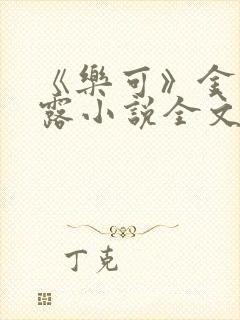 《樂可》金
露小說全文
丁克